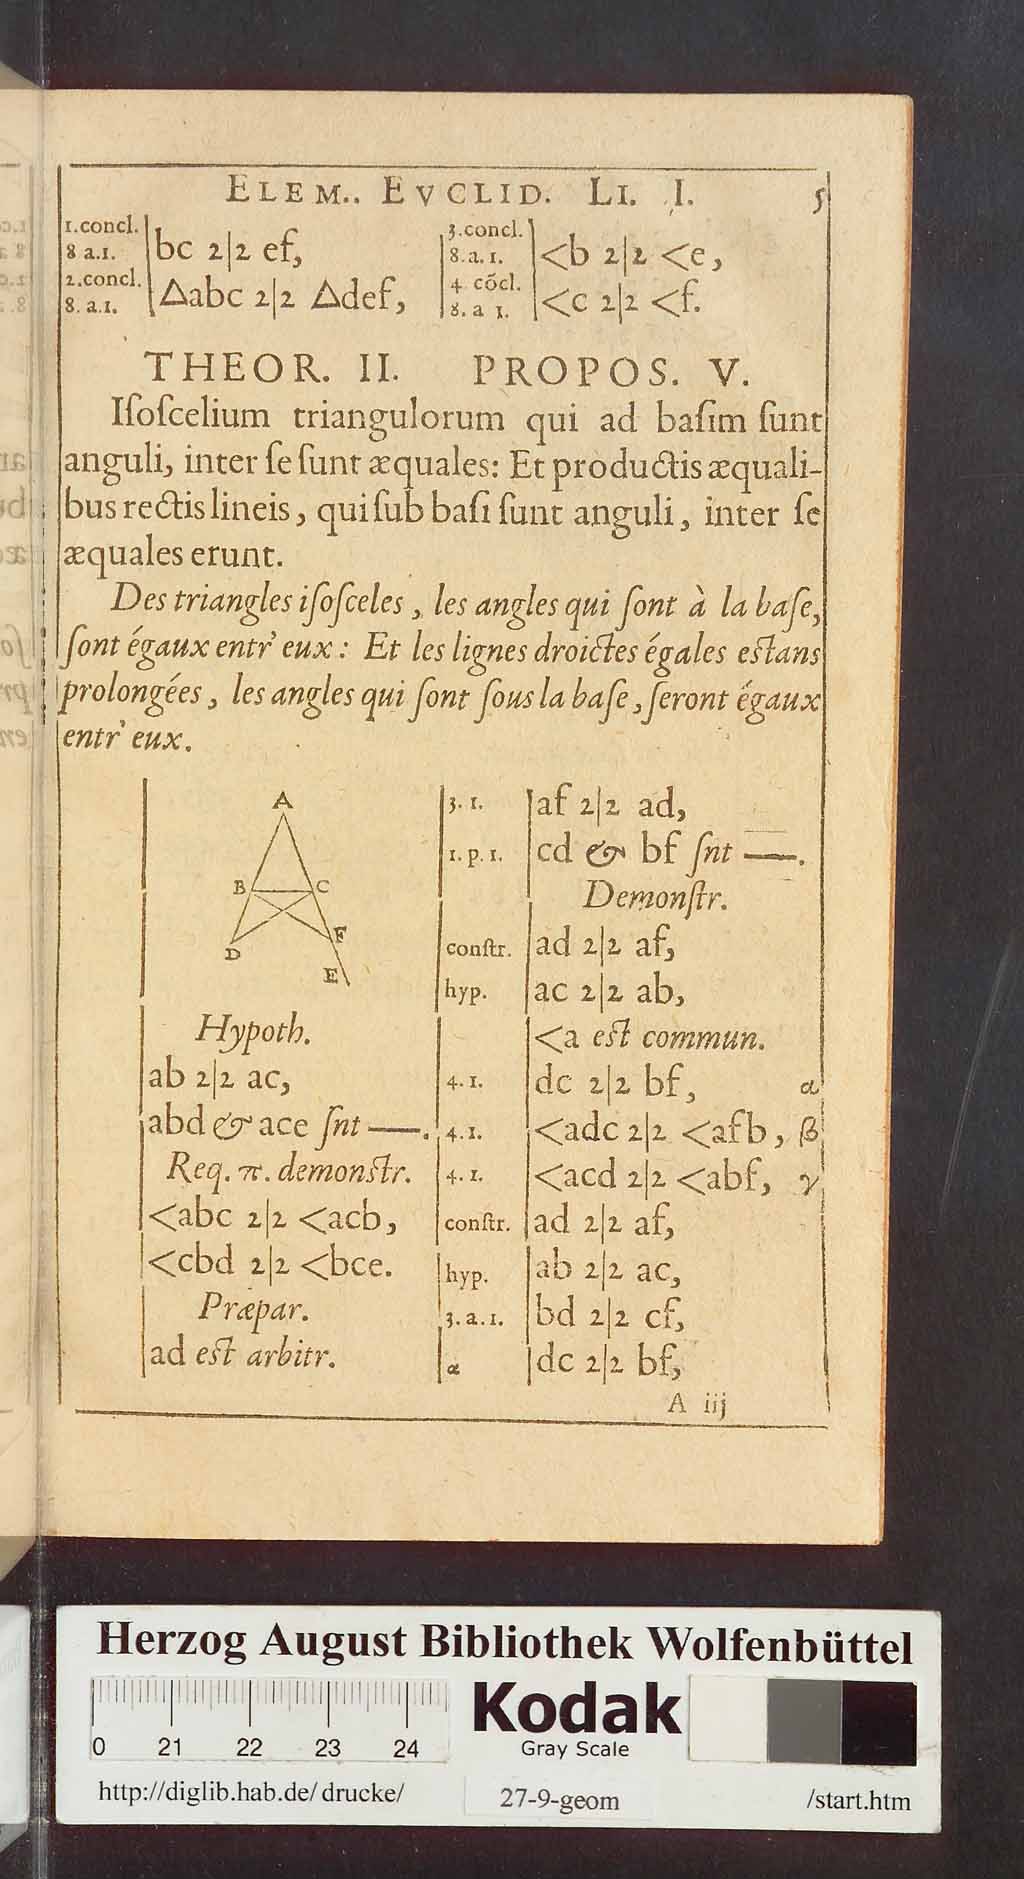 ELEM.. EVCLID. LI. I. 5
1.concl.
8 a.1. bc 2|2 ef,
2.concl.
8. a.1. △abc 2|2 △def,
3.concl.
8. a. 1. <b 2|2 <e,
4 cõcl.
8. a 1. <c 2|2 <f.
THEOR. II. PROPOS. V.
Iſoſcelium triangulorum qui ad baſim ſunt
anguli, inter ſe ſunt æquales: Et productis æquali-
bus rectis lineis, qui ſub baſi ſunt anguli, inter ſe
æquales erunt.
Des triangles iſoſceles, les angles qui ſont à la baſe,
ſont égaux entr' eux: Et les lignes droictes égales estans
prolongées, les angles qui ſont ſous la baſe, ſeront égaux
entr' eux.
A
B C
D F
E
Hypoth.
ab 2|2 ac,
abd & ace ſnt —.
Req. π. demonstr.
<abc 2|2 <acb,
<cbd 2|2 <bce.
Præpar.
ad est arbitr.
3. 1. af 2|2 ad,
1. p. 1. cd & bf ſnt —.
Demonſtr.
conſtr. ad 2|2 af,
hyp. ac 2|2 ab,
<a est commun.
4. 1. dc 2|2 bf, α
4. 1. <adc 2|2 <afb, β
4. 1. <acd 2|2 <abf, γ
conſtr. ad 2|2 af,
hyp. ab 2|2 ac,
3. a. 1. bd 2|2 cf,
α dc 2|2 bf,
A iij
Herzog August Bibliothek Wolfenbüttel
0 21 22 23 24
Kodak
Gray Scale
http://diglib.hab.de/drucke/ 27-9-geom /start.htm